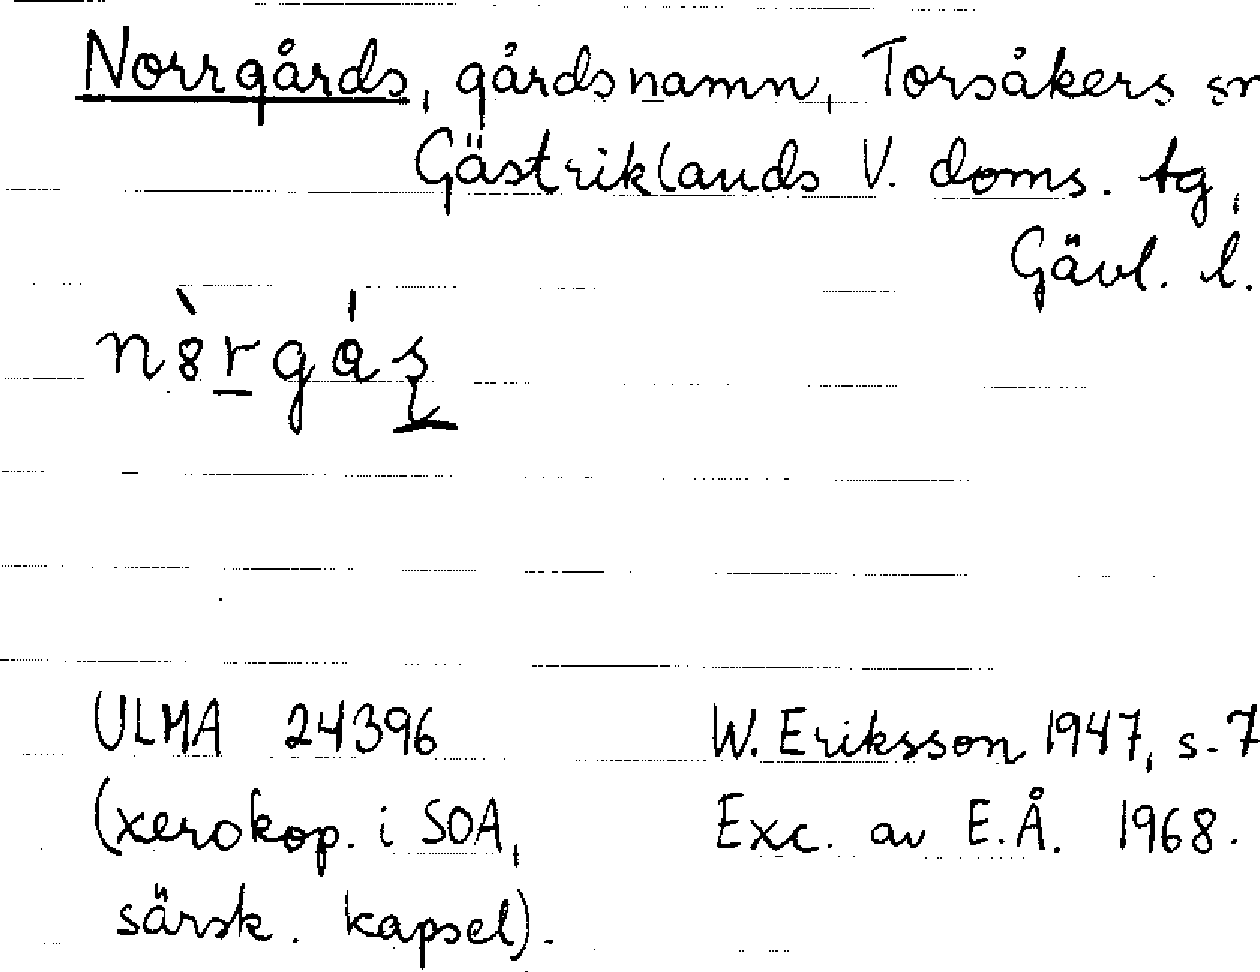 Norrgårds, gårdsnamn, Torsåkers sn
Gästriklands V. doms. tg,
Gävl. l.
ULMA 24396
W. Eriksson 1947, s. 7
(xerokop. i SOA,
Exc. av E.Å. 1968.
särsk. kapsel).